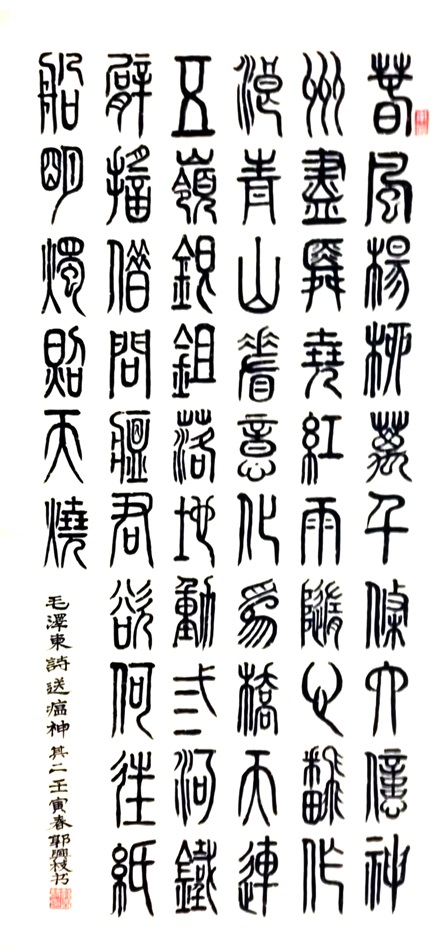 春風楊柳萬千條六億神
州盡舜堯紅雨隨心翻作
浪青山着意化為橋天連
五嶺銀鉏落地動弎河鐵
臂搖借問瘟君欲何往紙
船明燭照天燒
毛澤東詩送瘟神其二壬寅春郭興枝书